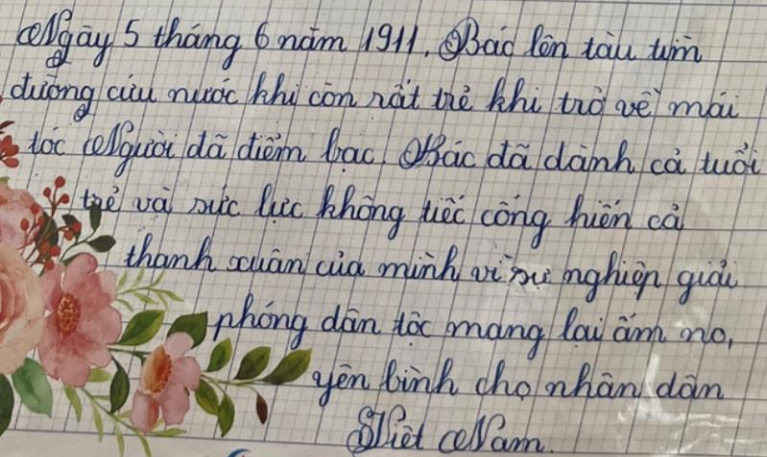 Ngày 5 tháng 6 năm 1911, Bác lên tàu tìm
đường cứu nước khi còn rất trẻ khi trở về mái
tóc Người đã điểm bạc. Bác đã dành cả tuổi
trẻ và sức lực không tiếc cống hiến cả
thanh xuân của mình vì sự nghiệp giải
phóng dân tộc mang lại ấm no,
yên bình cho nhân dân
Việt Nam.